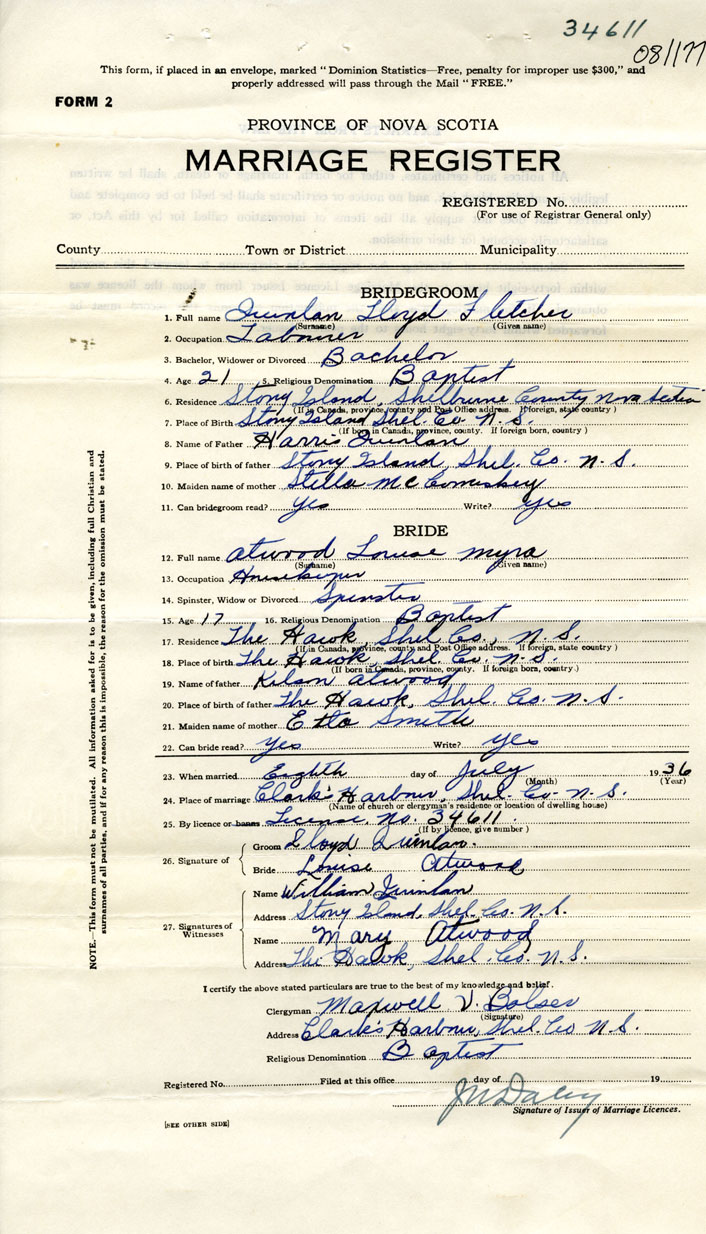 34611
081177
This form, if placed in an envelope, marked "Dominion Statistics—Free, penalty for improper use $300," and
properly addressed will pass through the Mail "FREE."
FORM 2
PROVINCE OF NOVA SCOTIA
MARRIAGE REGISTER
REGISTERED No.
(For use of Registrar General only)
County Town or District Municipality
BRIDEGROOM
1. Full name Quinlan Lloyd Fletcher
(Surname) (Given name)
2. Occupation Labourer
3. Bachelor, Widower or Divorced Bachelor
4. Age 21 5. Religious Denomination Baptist
6. Residence Stony Island, Shelburne County Nova Scotia
(If in Canada, province, county and Post Office address. If foreign, state country)
7. Place of Birth Stony Island Shel. Co. N. S.
(If born in Canada, province, county. If foreign born, country)
8. Name of Father Harris Quinlan
9. Place of birth of father Stony Island, Shel. Co. N. S.
10. Maiden name of mother Stella McComiskey
11. Can bridegroom read? Yes Write? Yes
BRIDE
12. Full name Atwood Louise Myra
(Surname) (Given name)
13. Occupation Housekeeper
14. Spinster, Widow or Divorced Spinster
15. Age 17 16. Religious Denomination Baptist
17. Residence The Hawk, Shel. Co., N. S.
(If in Canada, province, county and Post Office address. If foreign, state country)
18. Place of birth The Hawk, Shel. Co. N. S.
(If born in Canada, province, county. If foreign born, country.)
19. Name of father Kilson Atwood
20. Place of birth of father The Hawk, Shel. Co. N. S.
21. Maiden name of mother Etta Smith
22. Can bride read? Yes Write? Yes
23. When married Eighth day of July 1936
(Month) (Year)
24. Place of marriage Clark's Harbour, Shel. Co. N. S.
(Name of church or clergyman's residence or location of dwelling house)
25. By licence or banns License, No. 34611.
(If by licence, give number)
26. Signature of
Groom Lloyd Quinlan.
Bride Louise Atwood
27. Signatures of Witnesses
Name William Quinlan
Address Stony Island, Shel. Co. N. S.
Name Mary Atwood
Address The Hawk, Shel. Co. N. S.
I certify the above stated particulars are true to the best of my knowledge and belief.
Clergyman Maxwell V. Bolser
(Signature)
Address Clark's Harbour, Shel. Co N. S.
Religious Denomination Baptist
Registered No. Filed at this office day of 19
Signature of Issuer of Marriage Licences.
[SEE OTHER SIDE]
NOTE.—This form must not be mutilated. All information asked for is to be given, including full Christian and
surnames of all parties, and if for any reason this is impossible, the reason for the omission must be stated.